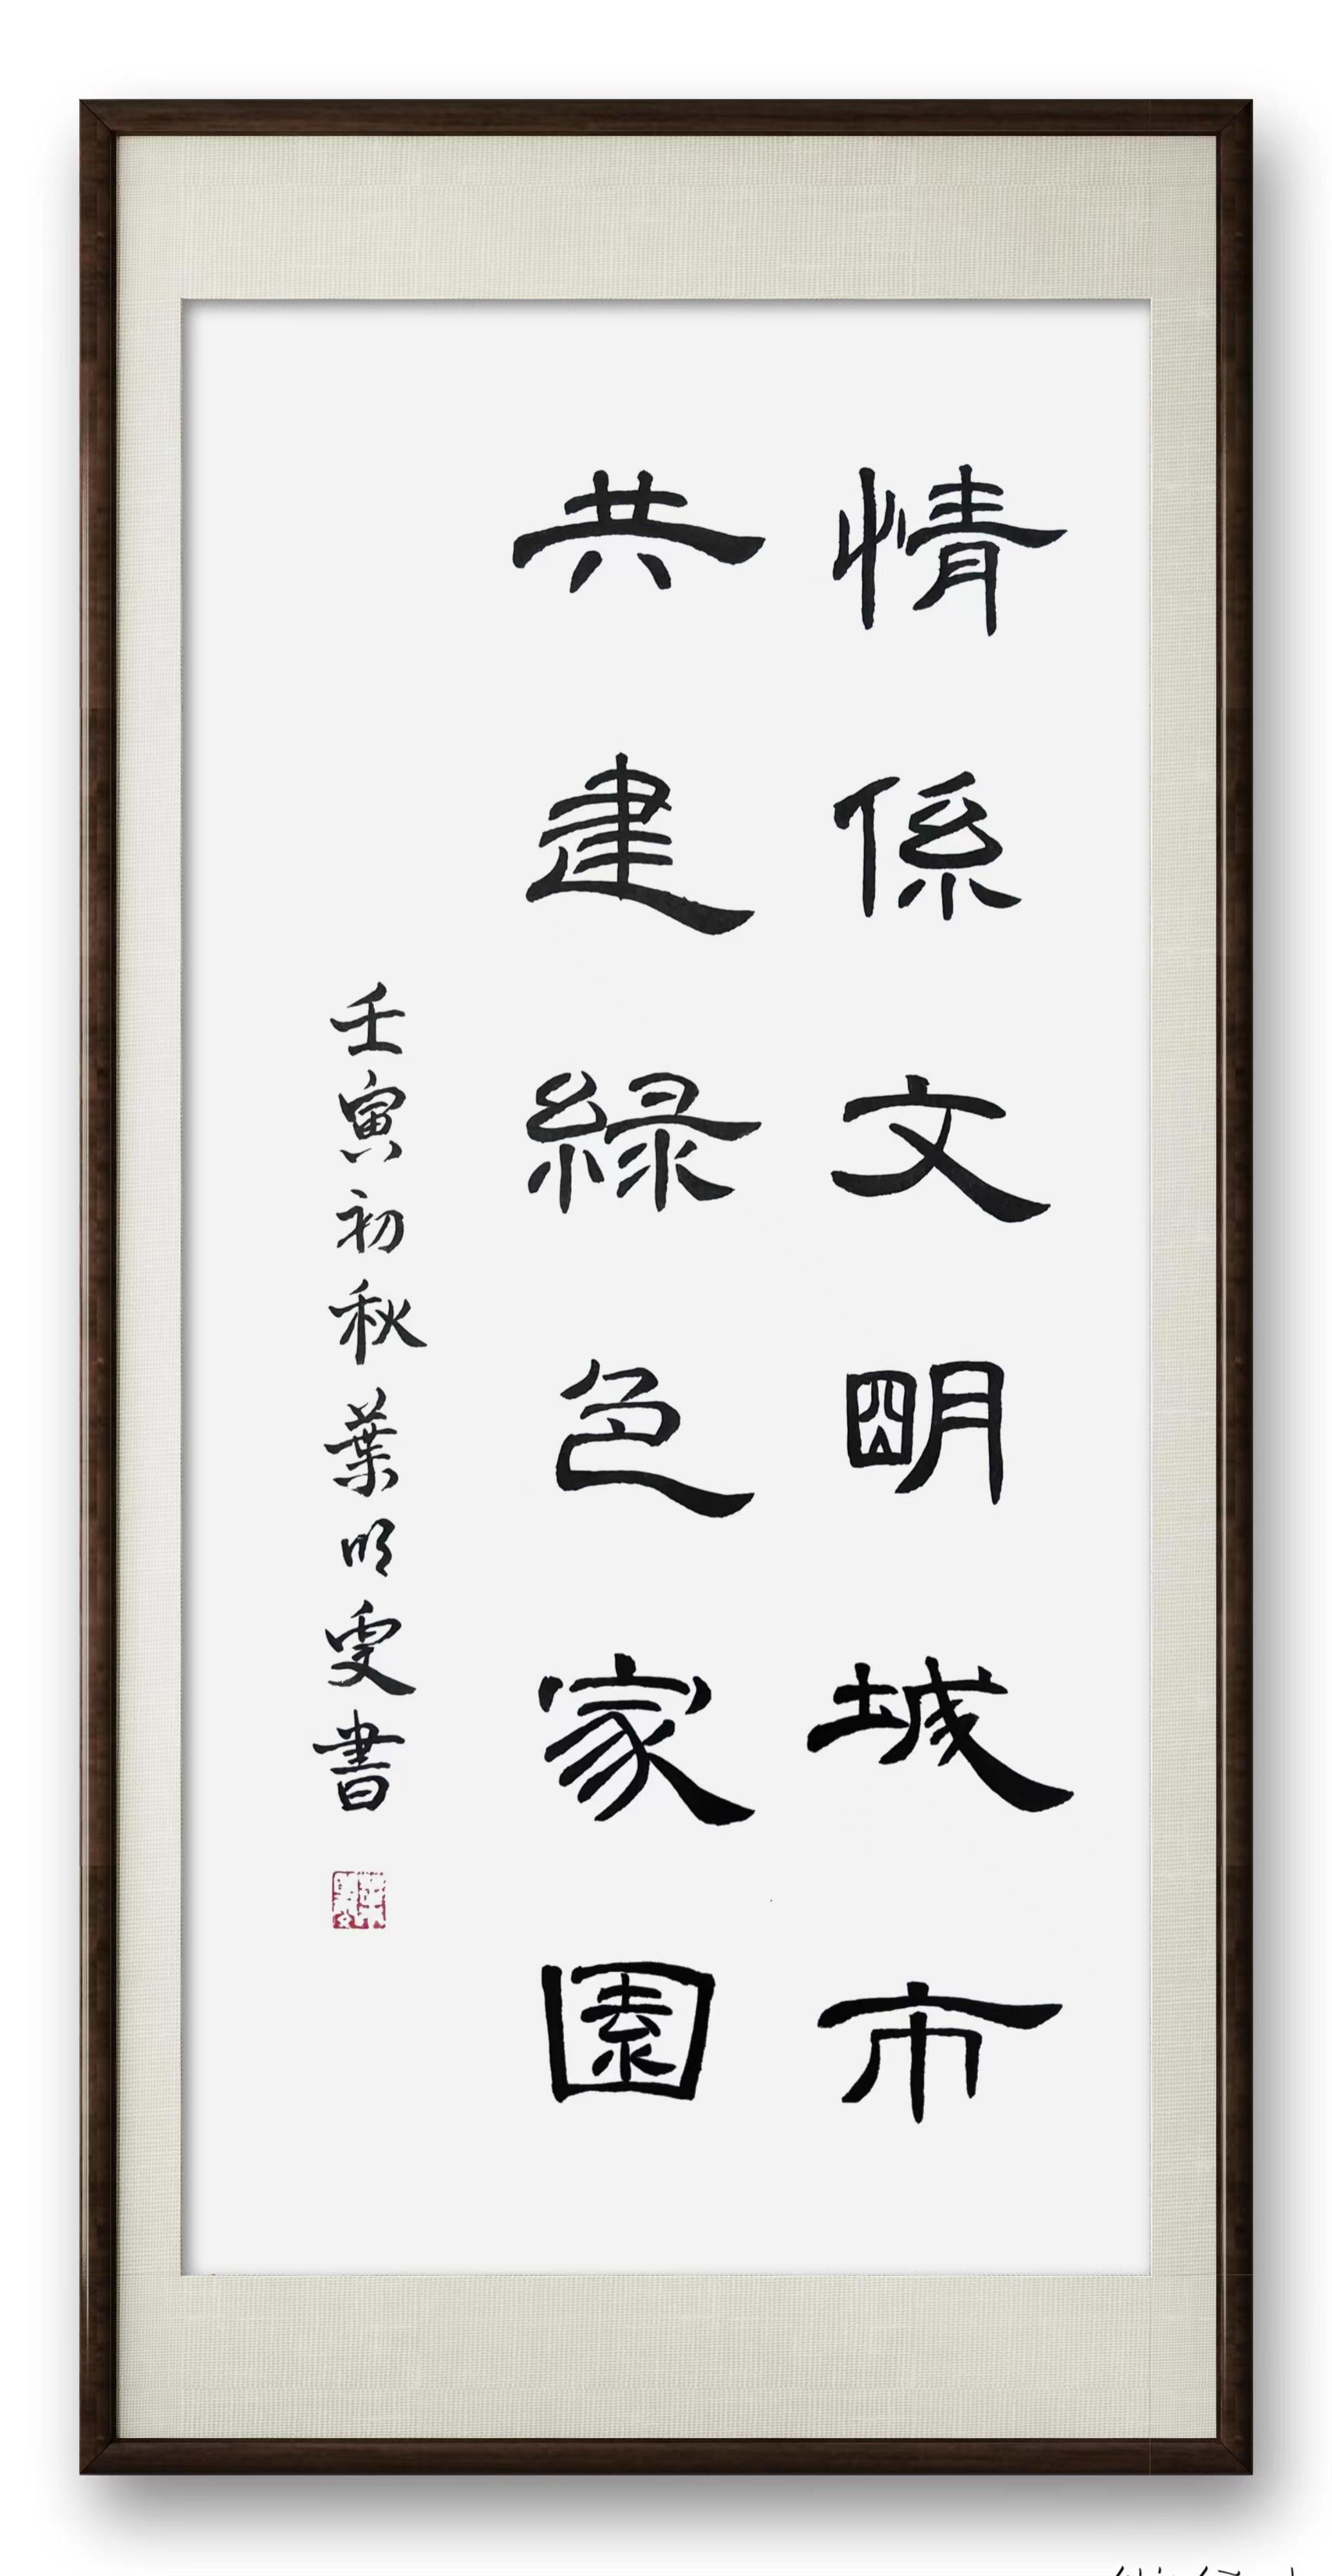 情係文明城市
共建緑色家園
壬寅初秋葉明雯書